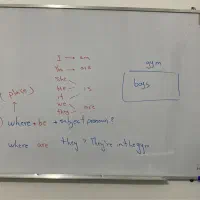 I → am
You → are
She
he → is
it
we
they → are
gym
boys
( place )
) where + be + subject pronoun?
where are they = They're in the gym